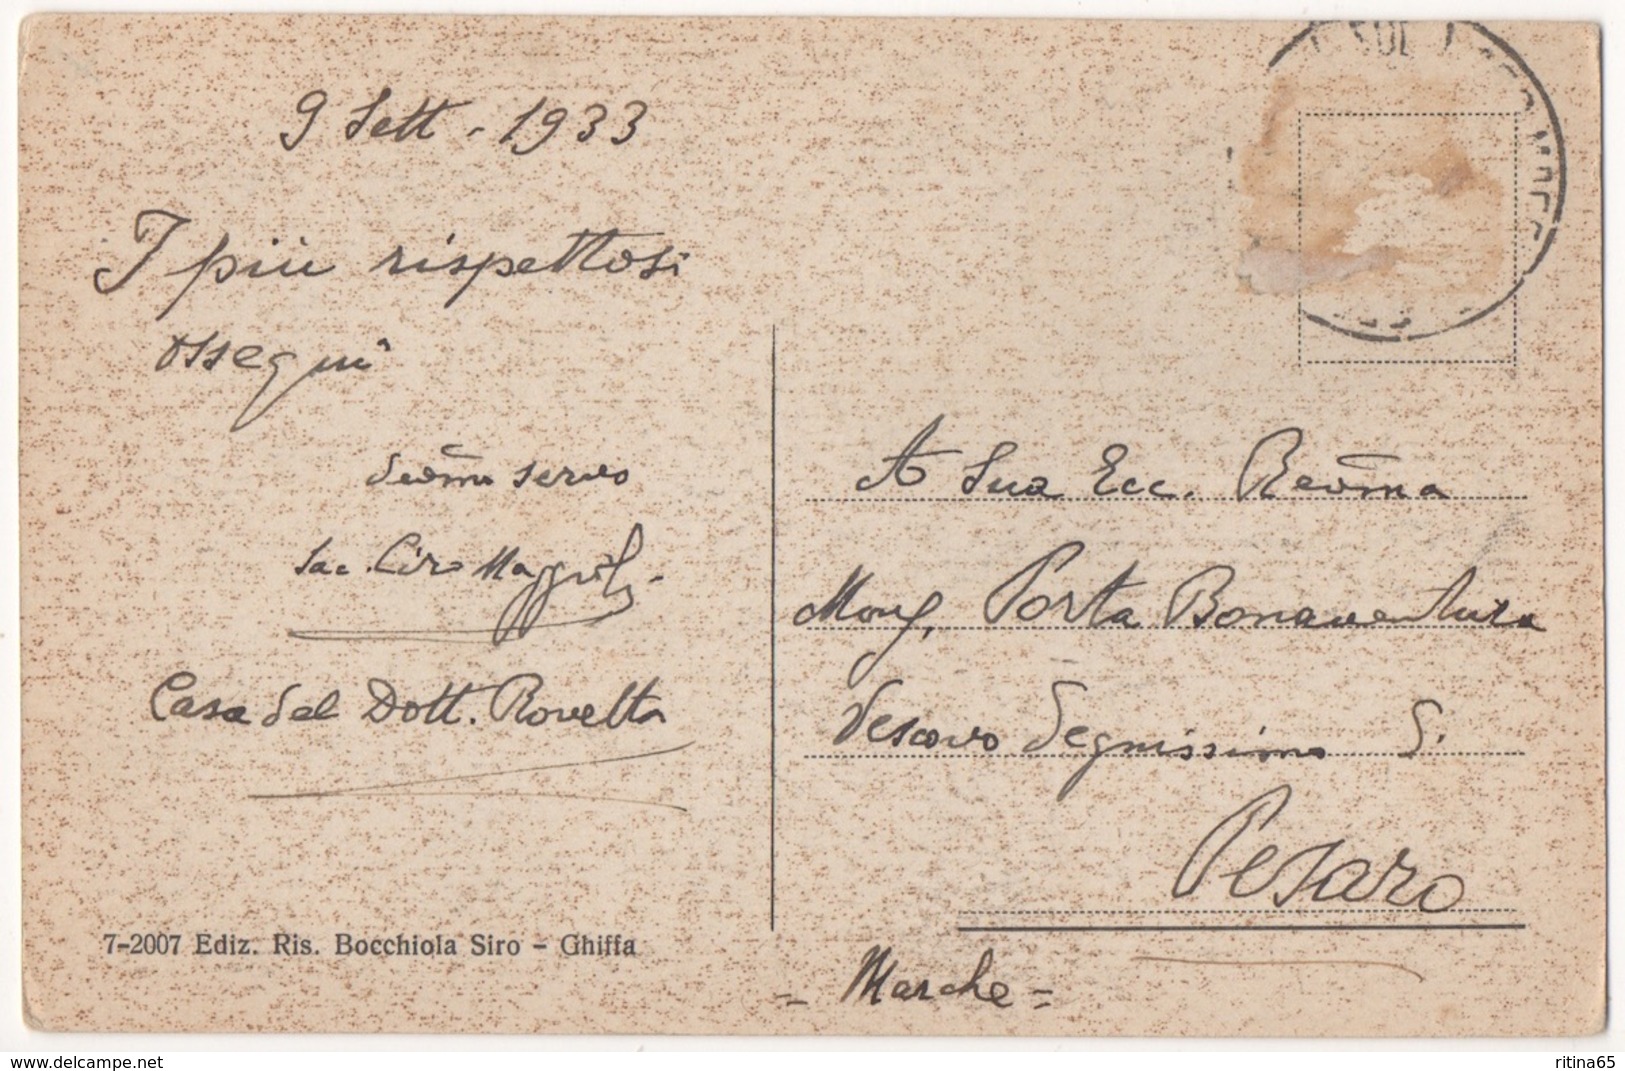 9 Sett. 1933
I più rispettosi
ossequi
devõmo servo
Sac. Ciro
Casa del Dott. Rovelta
7-2007 Ediz. Ris. Bocchiola Siro – Ghiffa
A Sua Ecc. Revma
Mons. Porta Bonaventura
Vescovo Degnissimo di
Pesaro
- Marche =
delcampe.net
ritina65